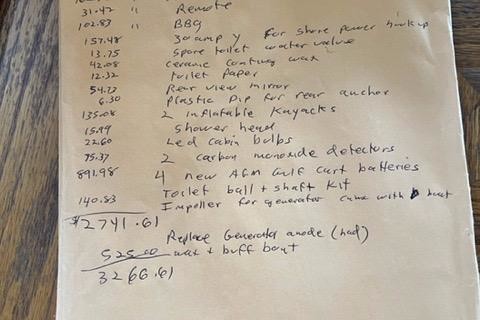 31.47 " Remote
102.83 " BBQ
157.48 30 amp y for shore power hookup
13.75 Spare toilet water valve
42.08 Ceramic coating wax
12.32 toilet Paper
54.73 Rear view mirror
6.30 Plastic Dip for rear anchor
135.08 2 inflatable Kayacks
15.99 Shower head
22.60 Led cabin bulbs
75.37 2 carbon monoxide detectors
891.98 4 new AGM Gulf cart batteries
Toilet ball + shaft Kit
140.83 Impeller for generator came with boat
$2741.61
Replace Generator anode (had)
525.00 wax + buff boat
3266.61